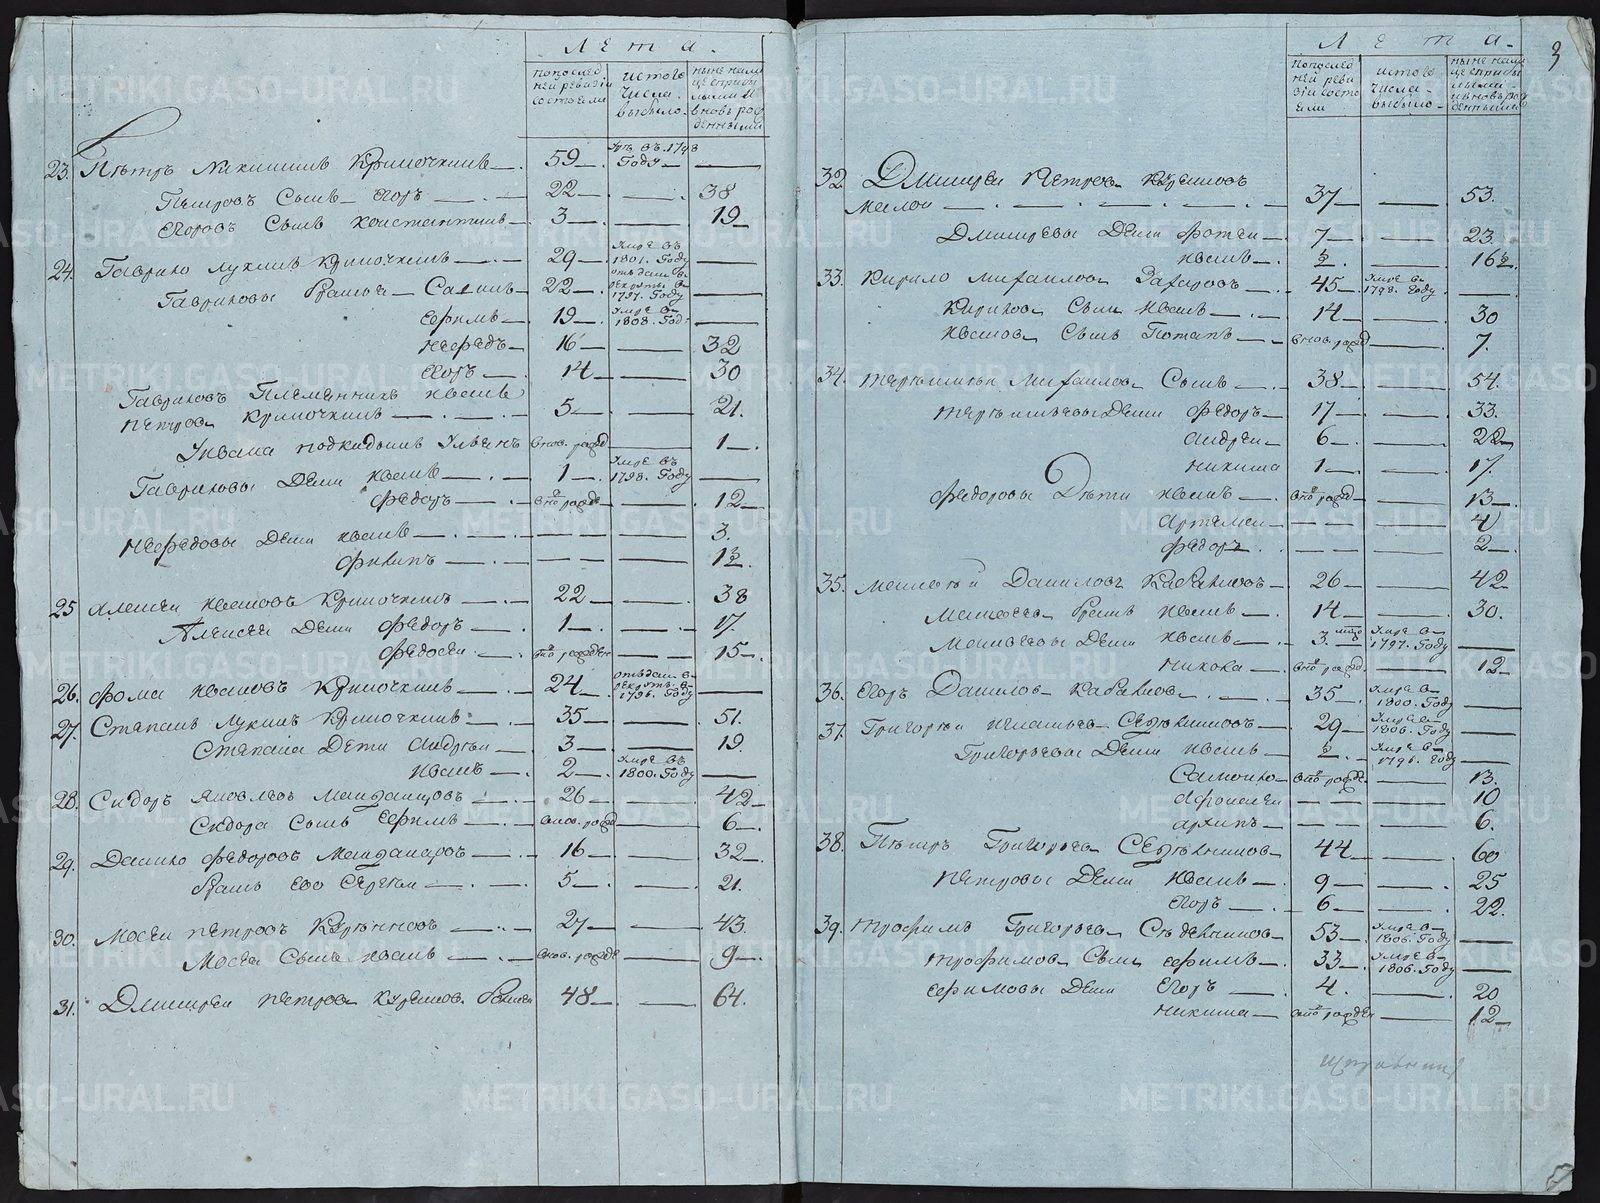 Лета.
попослед
ней ревизіи
состояли
истого
числа
выбыло
ныне нали
це сприбы
лыми и
вновь рож
денными
23. Петръ Никитинъ Крипочкинъ 59 Уме въ 1798 Году
Петровъ Сынъ Егоръ 22 38
Егоровъ Сынъ Констентинъ 3 19
24. Гаврило Лукинъ Крипочкинъ 29 Умре въ 1801. Году
Гавриловы братья 22 отъдан в рекруты в 1797. Году
Ефимъ 19 Умре в 1808. Году
Нефедъ 16 32
Егоръ 14 30
Гавриловъ Племенникъ Иванъ
Петровъ Крипочкинъ 5 21.
Ивана подкидышъ внов. рожд 1
Гавриловы Дети Иванъ 1 Умре въ 1798. Году
Федоръ вно рожде 12
Нефедовы Дети Иванъ 3.
Филипъ 1½.
25 Алексеи Ивановъ Крипочкинъ 22 38
Алексея Дети Федоръ 1 17.
Федосеи вно рожден 15
26. Фома Ивановъ Крипочкинъ 24 отъдан в рекрутъ в 1796. Году
27. Степанъ Лукинъ Крипочкинъ 35 51.
Степана Дети Андреи 3 19.
Иванъ 2 Умре въ 1800. Году
28. Сидоръ Яковлевъ 26 42
Сидора Сынъ Ефимъ внов. рожд 6
29. Данило Федоровъ 16 32
братъ Ево Сергеи 5 21.
30. Мосеи Петровъ 27 43.
Мосея Сынъ Иванъ внов. рожде 9
31. Дмитреи Петровъ 48 64.
3
Лета.
попослед
ней реви
зіи состо
яли
истого
числа
выбыло
ныне нали
це сприбы
лыми
и вновь рож
денными
32 Дмитреи Петровъ
Малои 37 53.
Дмитревы Дети Фотеи 7 23.
Иванъ ½. 16½.
33. Кирило Михаиловъ Захаровъ 45 Умре в 1798. Году
Кириловъ Сынъ Иванъ 14 30
Ивановъ Сынъ Потапъ внов. рожд 7.
34. Михаиловъ Сынъ 38 54.
Дети Федоръ 17 33.
Андреи 6 22
Никита 1 17.
Федоровы Дети Иванъ вно рожд 13
Артемеи 4
Федоръ 2
35. Матвеи Даниловъ Кабаковъ 26 42
Матвеевъ братъ Иванъ 14 30.
Матвеевы Дети Иванъ 3. Умре в 1797. Году
Никола вно рожд 12
36. Егоръ Даниловъ Кабаковъ 35 Умре в 1800. Году
37. Григореи Игнатьевъ 29 Умре в 1806. Году
Григорьевы Дети Иванъ ½ Умре в 1796. Году
Самоило вно рожде 13.
Афонасеи 10
Архипъ 6.
38. Петръ Григорьевъ 44 60
Петровы Дети Иванъ 9 25
Егоръ 6 22.
39. Трофимъ Григорьевъ 53 Умре в 1806. Году
Трофимовъ Сынъ Ефимъ 33 Умре в 1806. Году
Ефимовы Дети Егоръ 4. 20
Никита вно рожден 12
METRIKI.GASO-URAL.RU